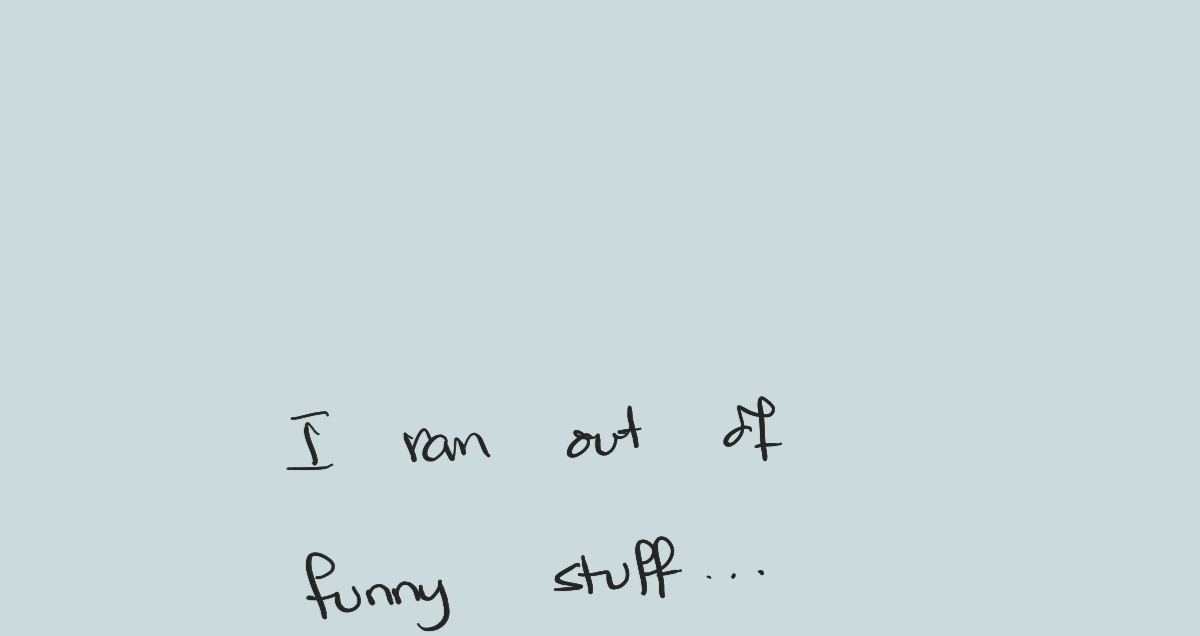 I ran out of
funny stuff...